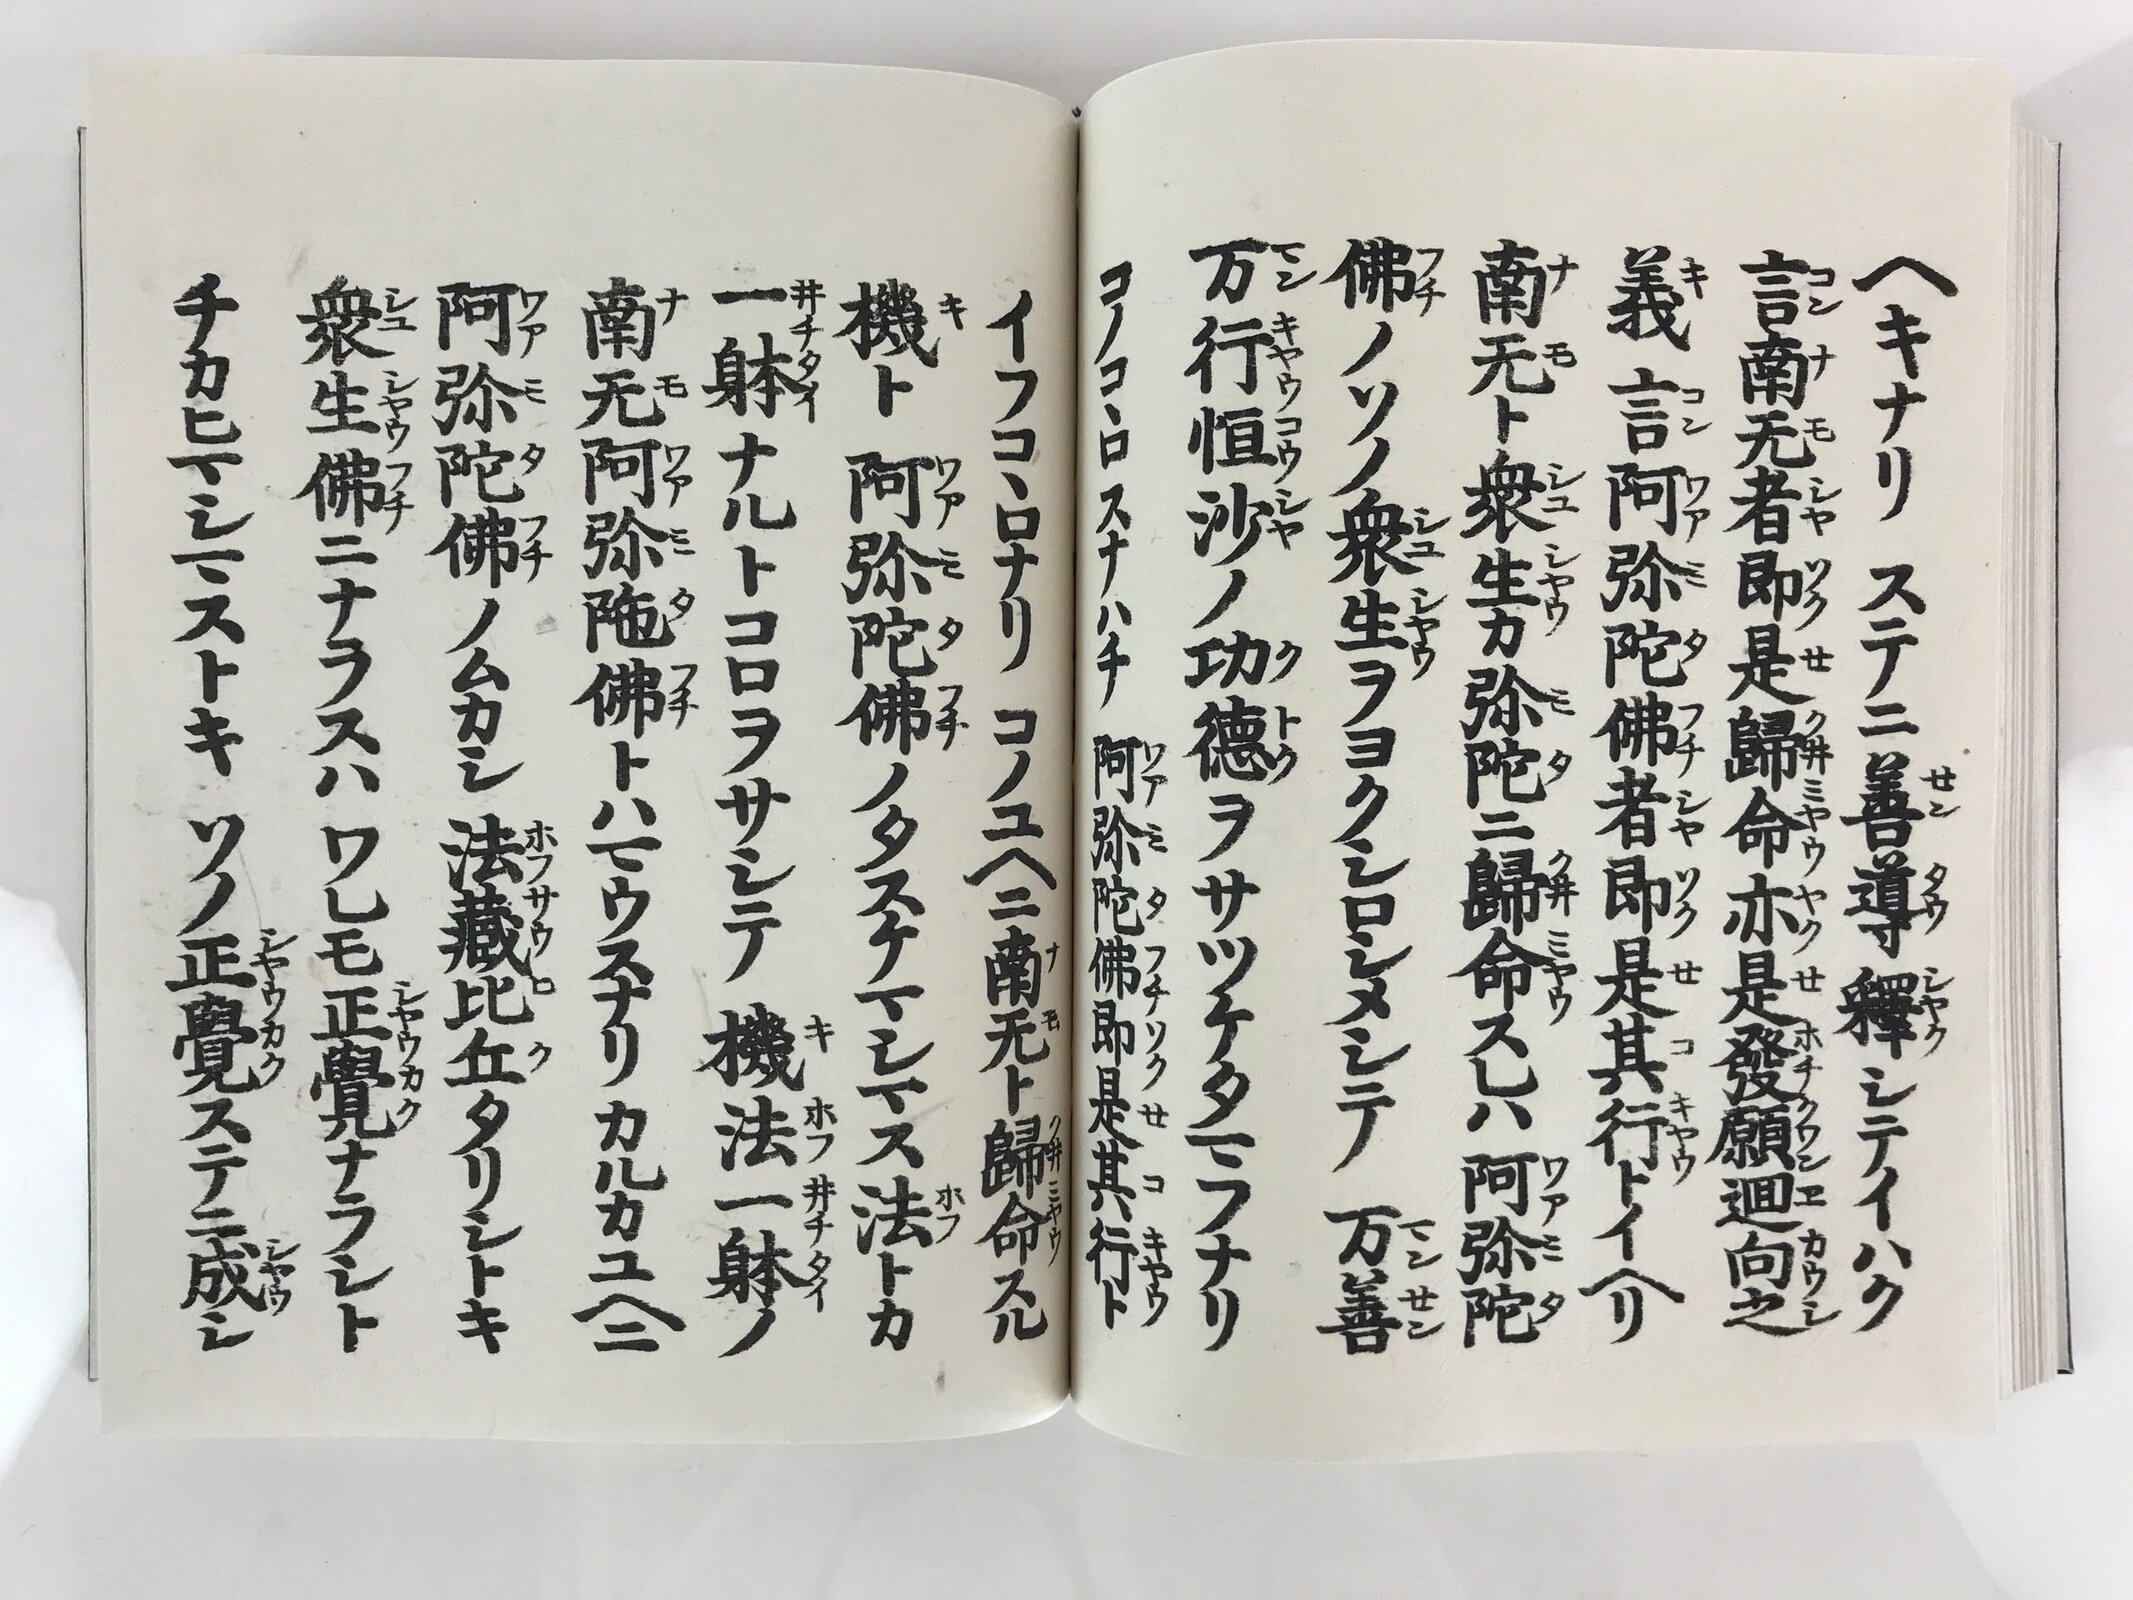 ヘキナリ ステニ善導釋シテイハク
言南无者即是歸命亦是發願迴向之
義 言阿弥陀佛者即是其行トイヘリ
南无ト衆生カ弥陀ニ歸命スレハ 阿弥陀
佛ノソノ衆生ヲヨクシロシメシテ 万善
万行恒沙ノ功德ヲサツケタマフナリ
コノコヽロスナハチ 阿弥陀佛即是其行ト
イフコヽロナリ コノユヘニ南无ト歸命スル
機ト 阿弥陀佛ノタスケマシマス法トカ
一躰ナルトコロヲサシテ 機法一躰ノ
南无阿弥陁佛トハマウスナリ カルカユヘニ
阿弥陀佛ノムカシ 法藏比丘タリシトキ
衆生佛ニナラスハ ワレモ正覺ナラシト
チカヒマシマストキ ソノ正覺ステニ成シ